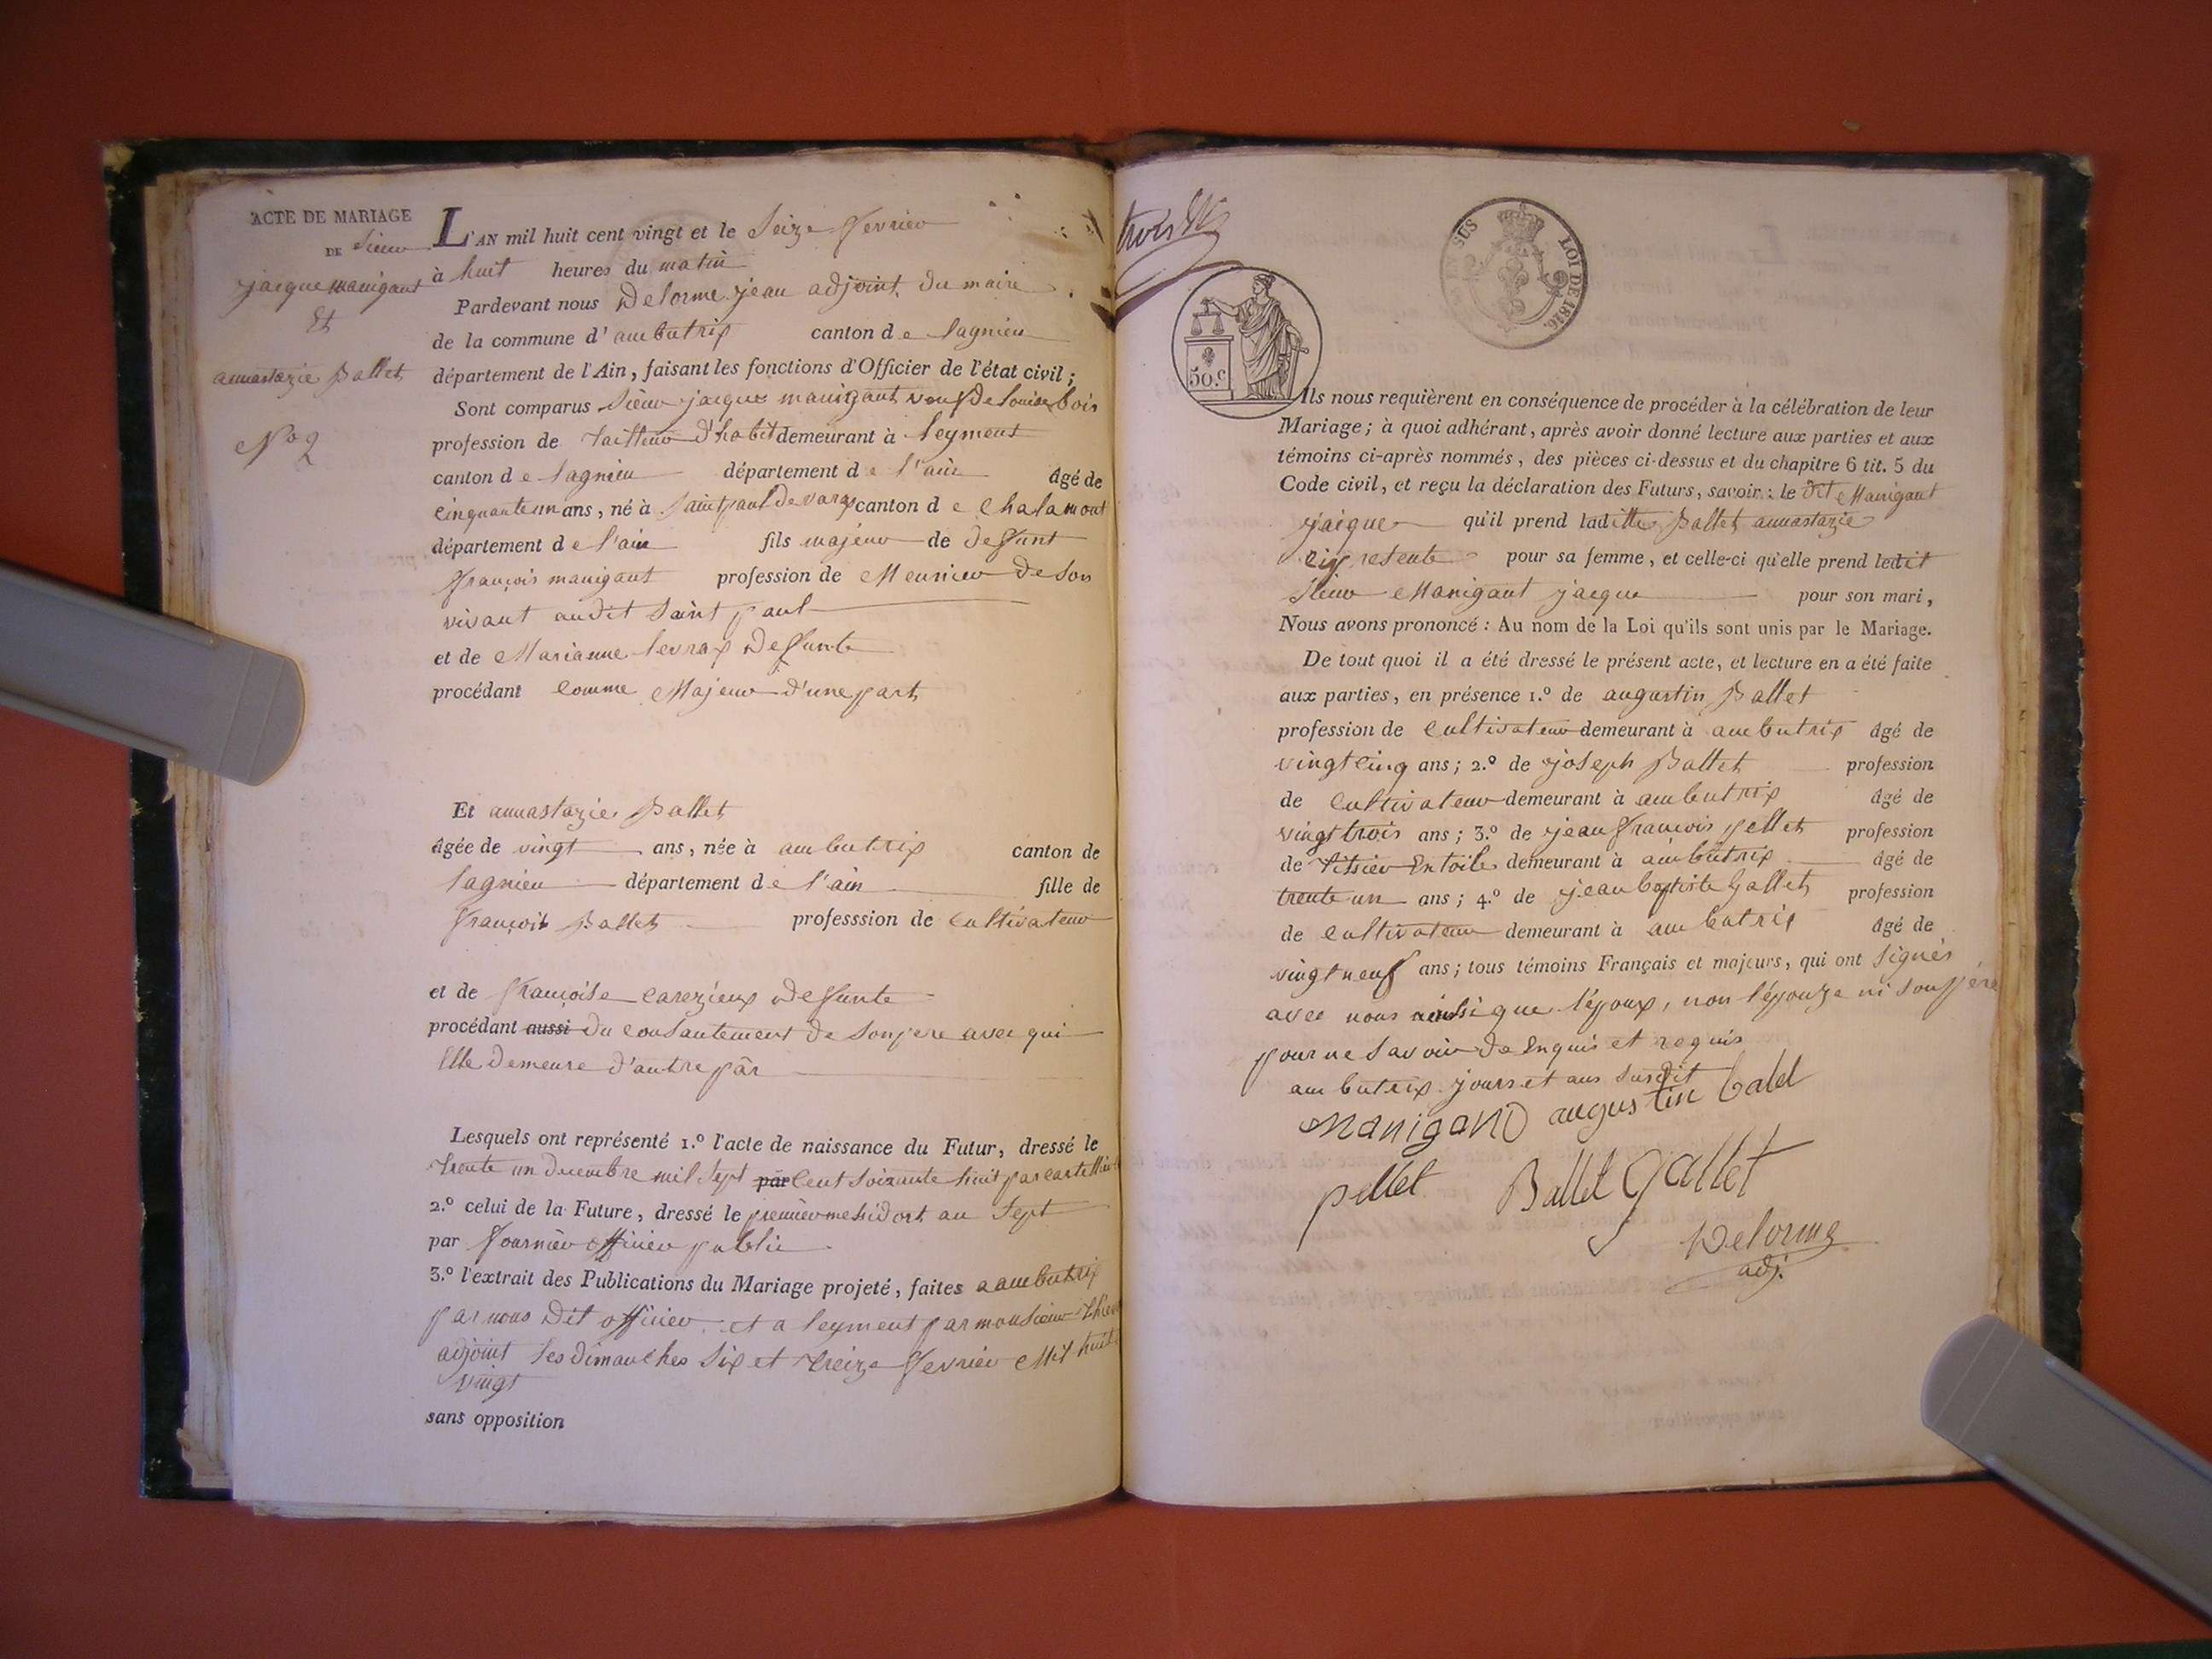 ACTE DE MARIAGE
DE Sieur
jacque manigant
Et
annastazie Ballet
No 2
L'AN mil huit cent vingt et le Seize fevrier
à huit heures du matin
Pardevant nous Delorme jean adjoint du maire
de la commune d'ambutrix canton de lagnieu
département de l'Ain, faisant les fonctions d'Officier de l'état civil ;
Sont comparus Sieur jacque manigant veuf de louise bois
profession de tailleur d'habit demeurant à leyment
canton de lagnieu département de l'ain âgé de
cinquante un ans, né à Saint paul de varax canton de Chalamont
département de l'ain fils majeur de defunt
françois manigant profession de Meunier de son
vivant audit Saint paul
et de Marianne levrax Defunte
procédant comme Majeur d'une part
Et annastazie Ballet
âgée de vingt ans, née à ambutrix canton de
lagnieu département de l'ain fille de
françois Ballet professsion de cultivateur
et de françoise carezieux defunte
procédant aussi du consantement de son pere avec qui
Elle demeure d'autre pâr
Lesquels ont représenté 1.º l'acte de naissance du Futur, dressé le
trente un decembre mil sept par cent soixante huit par
2.º celui de la Future, dressé le premier messidort an sept
par fournier officier public
3.º l'extrait des Publications du Mariage projeté, faites a ambutrix
par nous Dit officier et a leyment par monsieur
adjoint les dimanches six et treize fevrier Mil huit
vingt
sans opposition
trois
LOI DE 1816.
50.c
Ils nous requièrent en conséquence de procéder à la célébration de leur
Mariage ; à quoi adhérant, après avoir donné lecture aux parties et aux
témoins ci-après nommés, des pièces ci-dessus et du chapitre 6 tit. 5 du
Code civil, et reçu la déclaration des Futurs, savoir : le dit Manigant
jacque qu'il prend laditte Ballet annastazie
ci presente pour sa femme, et celle-ci qu'elle prend ledit
Sieur Manigant jacque pour son mari,
Nous avons prononcé : Au nom de la Loi qu'ils sont unis par le Mariage.
De tout quoi il a été dressé le présent acte, et lecture en a été faite
aux parties, en présence 1.º de augustin Ballet
profession de cultivateur demeurant à ambutrix âgé de
vingt cinq ans ; 2.º de joseph Ballet profession
de cultivateur demeurant à ambutrix âgé de
vingt trois ans ; 3.º de jean françois pellet profession
de tissier en toile demeurant à ambutrix âgé de
trente un ans ; 4.º de jean baptiste gallet profession
de cultivateur demeurant à ambutrix âgé de
vingt neuf ans ; tous témoins Français et majeurs, qui ont signés
avec nous ainsi que l'époux, non l'épouze ni son père
pour ne savoir de enquis et requis
ambutrix jours et ans susdit
manigand augustin balel
pellet Ballet gallet
Delorme
adj.